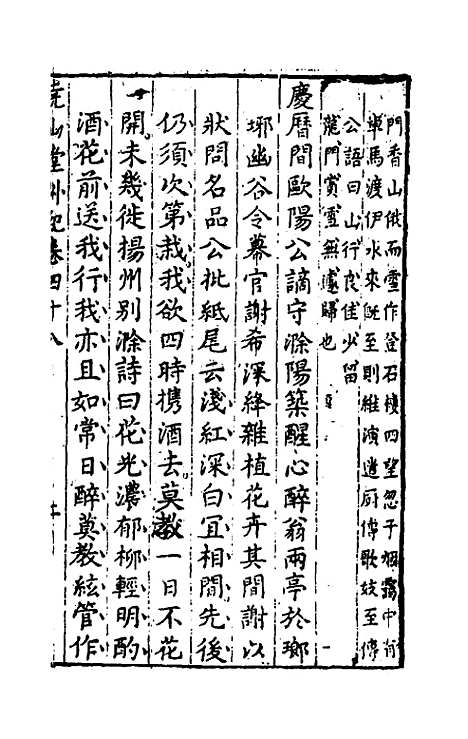 門香山俄而雪作登石樓四望忽于烟靄中有
單馬渡伊水來既至則維演遣厨傳歌妓至傳
公語曰山行良佳少留
龍門賞雪無遽歸也
慶曆間歐陽公謫守滁陽築醒心醉翁兩亭於瑯
琊幽谷令幕官謝希深絳雜植花卉其間謝以
狀問名品公批紙尾云淺紅深白宜相間先後
仍須次第栽我欲四時携酒去莫教一日不花
開未幾徙揚州别滁詩曰花光濃郁柳輕明酌
酒花前送我行我亦且如常日醉莫教絃管作
堯山堂外紀卷四十八